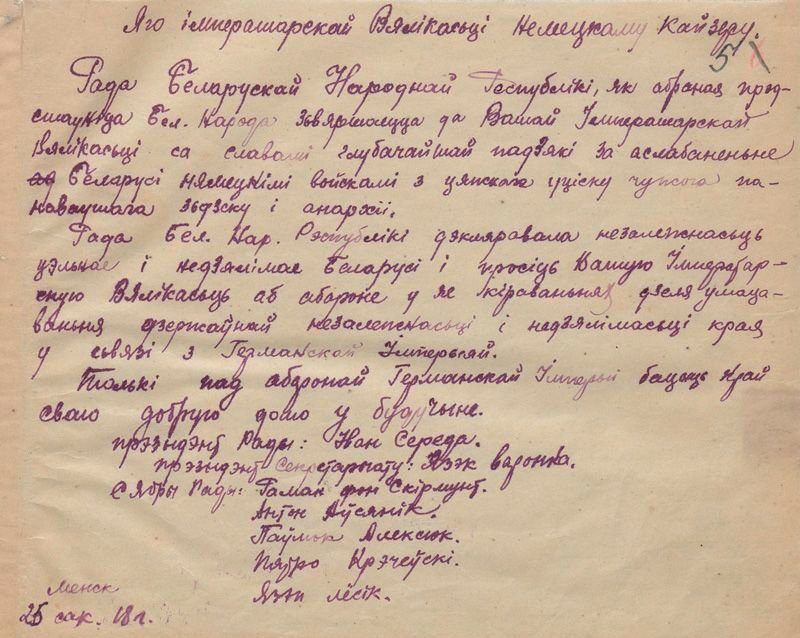 Яго імператарскай Вялікасьці Немецкаму Кайзеру.
51
Рада Беларускай Народнай Рэспублікі, як абраная прэд-
стаўніца Бел. Народа зьвяртаецца да Вашай Імператарскай
Вялікасьці са славамі глубачайшай падзякі за аслабаненьне
Беларусі нямецкімі войскамі з цяжкага уціску чужога па-
наваўшага зьдзеку і анархіі.
Рада Бел. Нар. Рэспублікі дэкляравала незалежнасьць
цэльнае і недзялімае Беларусі і просіць Вашую Імператар-
скую Вялікасьць аб абароне у яе кіраваньнях дзеля умаца-
ваньня дзержаўнай незалежнасьці і недзялімасьці края
у сьвязі з Германскай Імперыяй.
Толькі пад абаронай Германскай Імперыі бачыць Край
сваю добрую долю у будучыне.
прэзыдэнт Рады: Іван Середа.
прэзыдэнт Секретарыату: Язэп Варонка.
Сябры Рады: Раман фон Скірмунт.
Антон Аўсянік.
Паўлюк Алексюк.
Пятро Крэчеўскі.
Язэп Лёсік.
Менск
25 сак. 18 г.